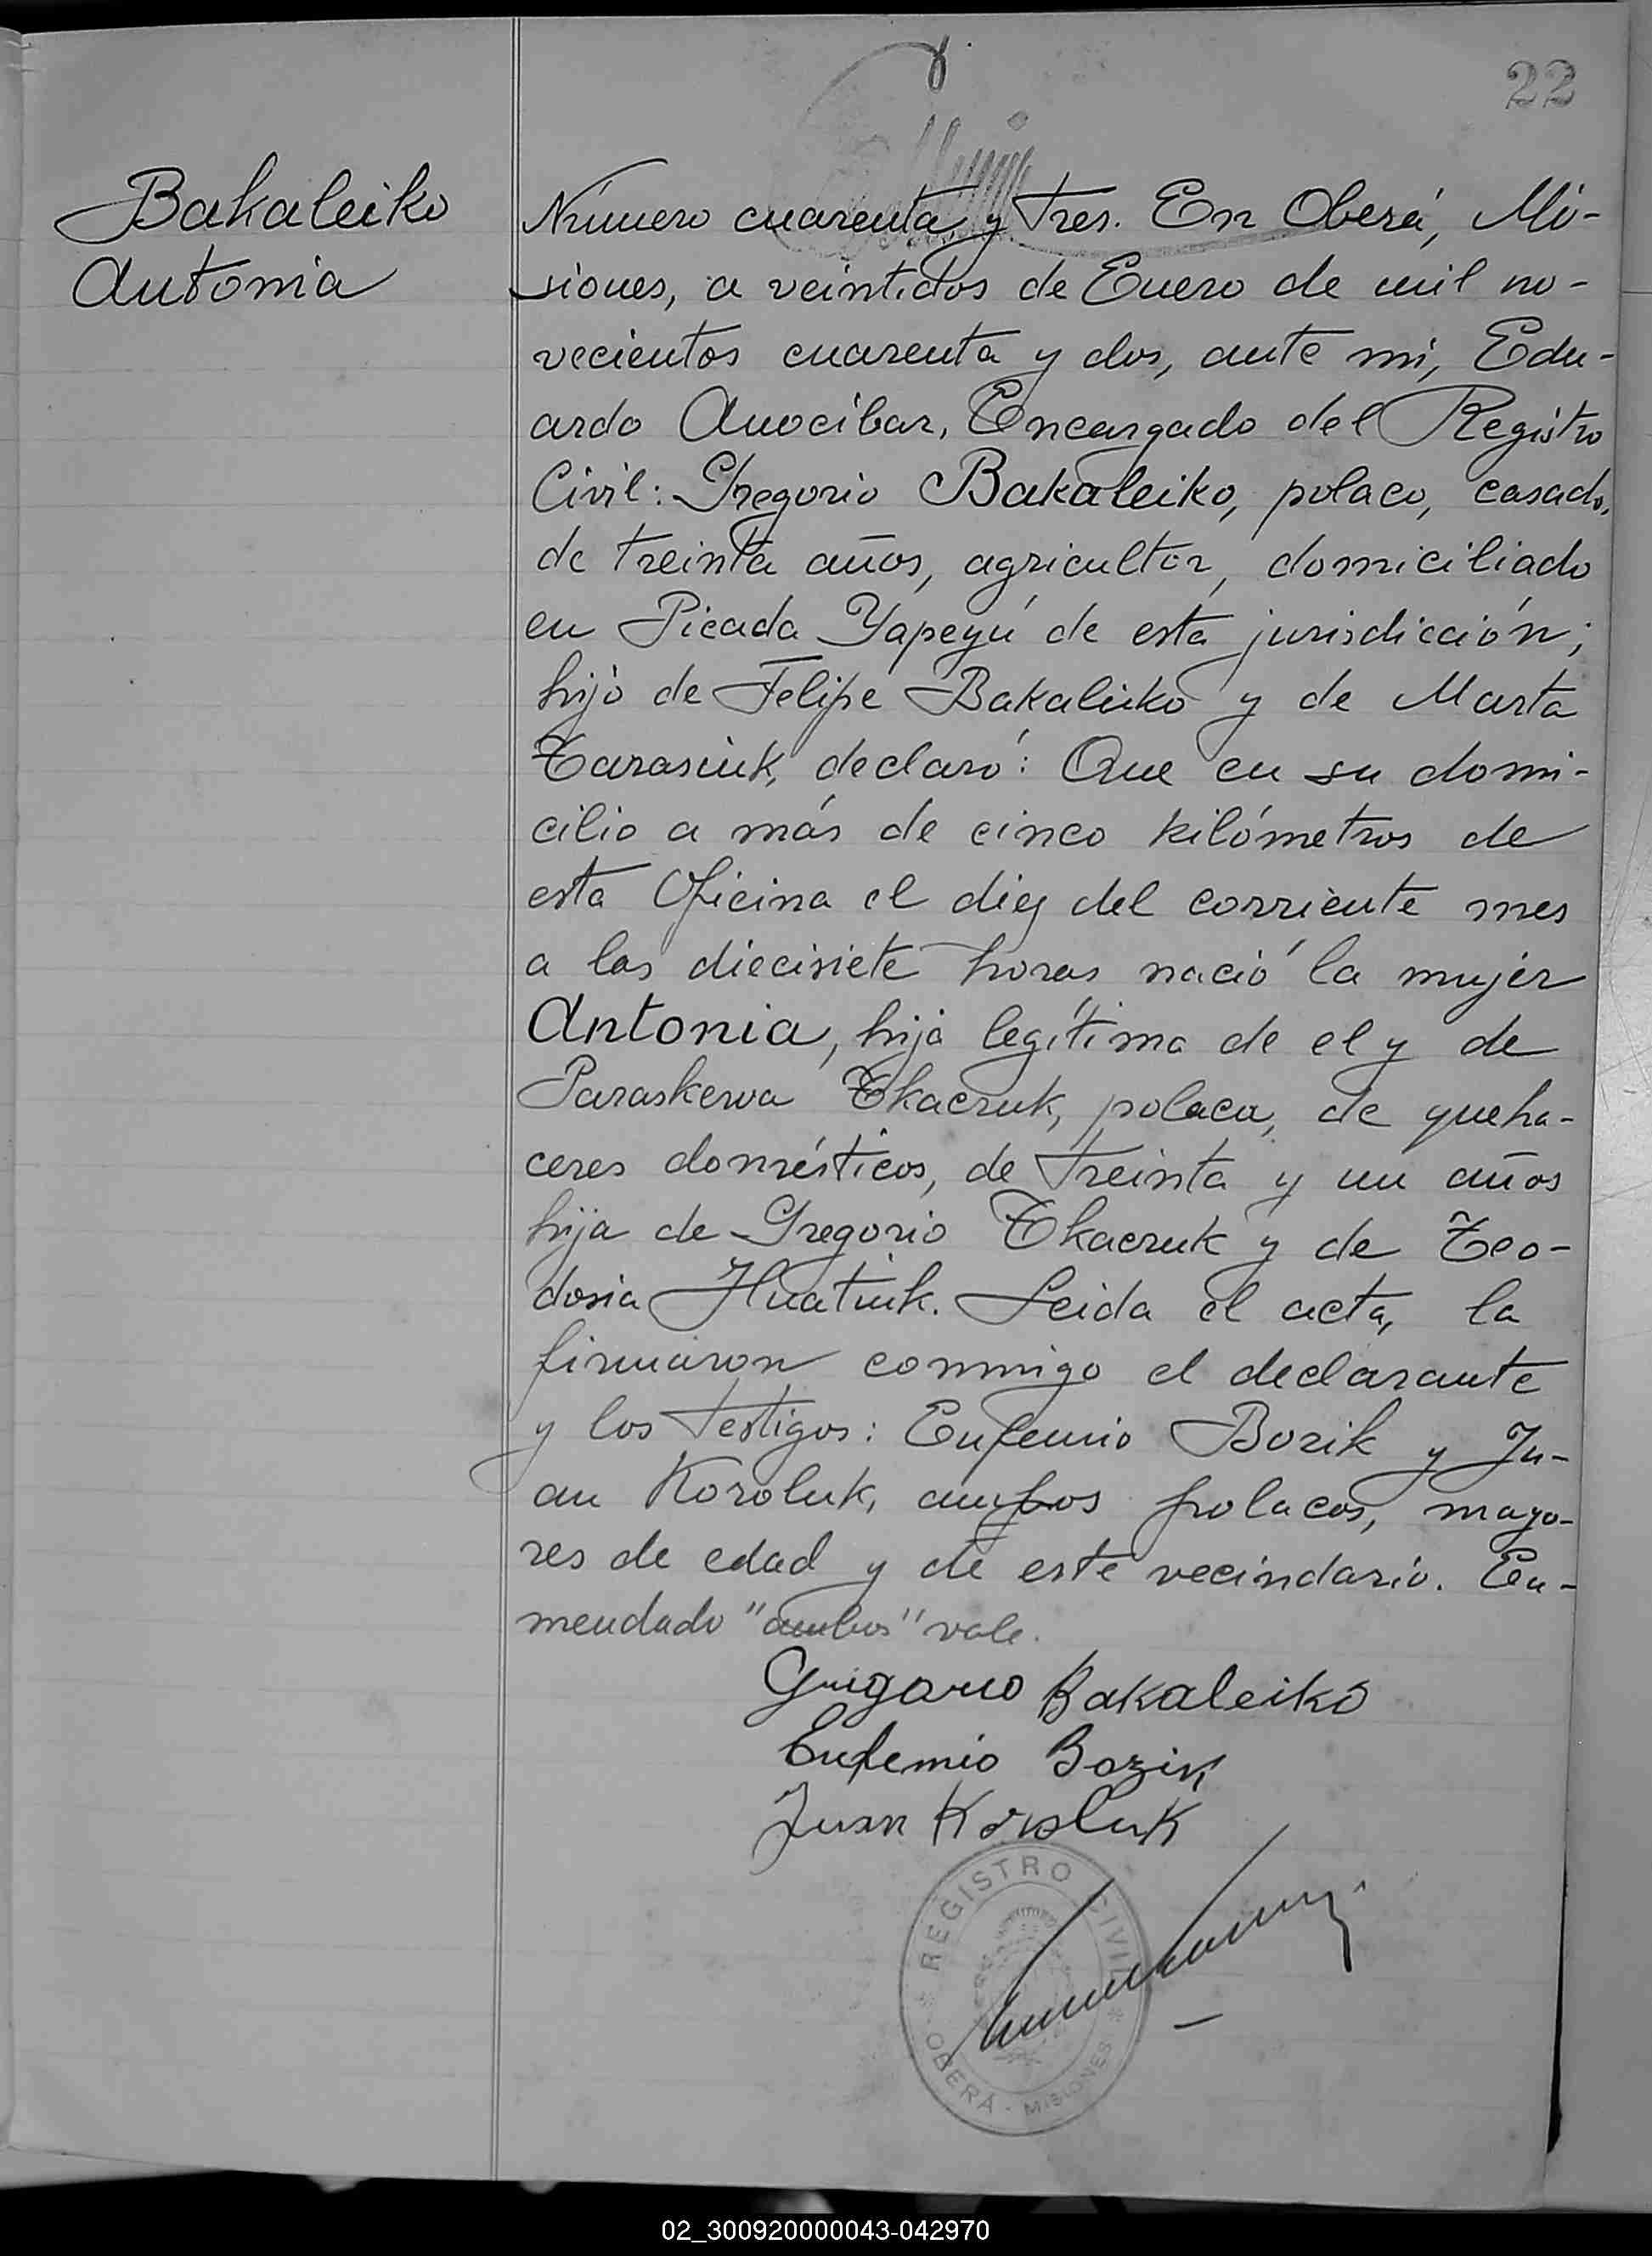 22
Bakaleiko
Antonia
Número cuarenta y tres. En Oberá, Mi-
siones, a veintidos de Enero de mil no-
vecientos cuarenta y dos, ante mi, Edu-
ardo Anocibar, Encargado del Registro
Civil: Gregorio Bakaleiko, polaco, casado,
de treinta años, agricultor, domiciliado
en Picada Yapeyú de esta jurisdicción;
hijo de Felipe Bakaleiko y de Marta
Tarasiuk, declaró: Que en su domi-
cilio a más de cinco kilómetros de
esta Oficina el diez del corriente mes
a las diecisiete horas nació la mujer
Antonia, hija legítima de el y de
Paraskewa Tkaczuk, polaca, de queha-
ceres domésticos, de treinta y un años
hija de Gregorio Tkaczuk y de Teo-
dosia Hnatiuk. Leida el acta, la
firmaron conmigo el declarante
y los testigos: Eufemio Bozik y Ju-
an Koroluk, ambos polacos, mayo-
res de edad y de este vecindario. En-
mendado "ambos" vale.
Grigorio Bakaleiko
Eufemio Bozik
Juan Koroluk
REGISTRO CIVIL
OBERÁ - MISIONES
02_300920000043-042970